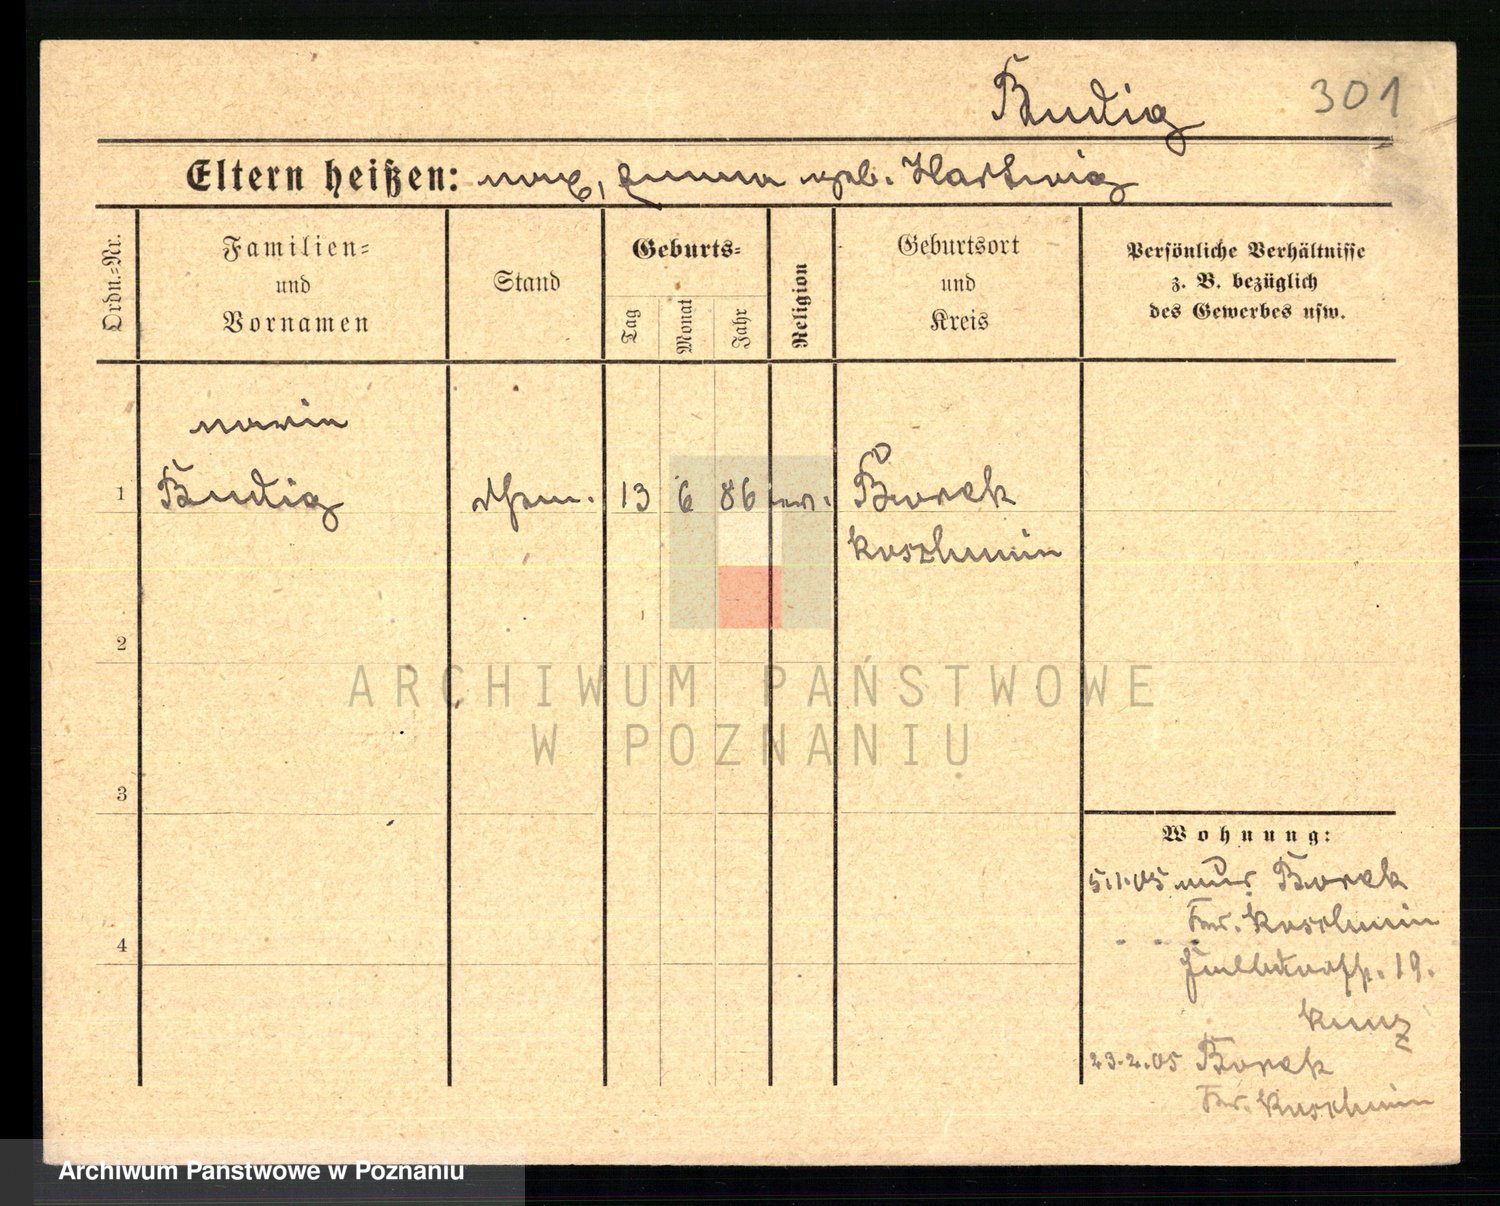 Budig
301
Eltern heißen: Max, Emma geb. Hartwig
Ordn.-Nr.
Familien-
und
Vornamen
Stand
Geburts-
Tag
Monat
Jahr
Religion
Geburtsort
und
Kreis
Persönliche Verhältnisse
z. B. bezüglich
des Gewerbes usw.
Maria
1 Budig 13 6 86 ev. Borek
Koschmin
2
3
4
Wohnung:
5.1.05 Borek
Kr. Koschmin
19.
Kunz
23.2.05 Borek
Kr. Koschmin
ARCHIWUM PAŃSTWOWE
W POZNANIU
Archiwum Państwowe w Poznaniu